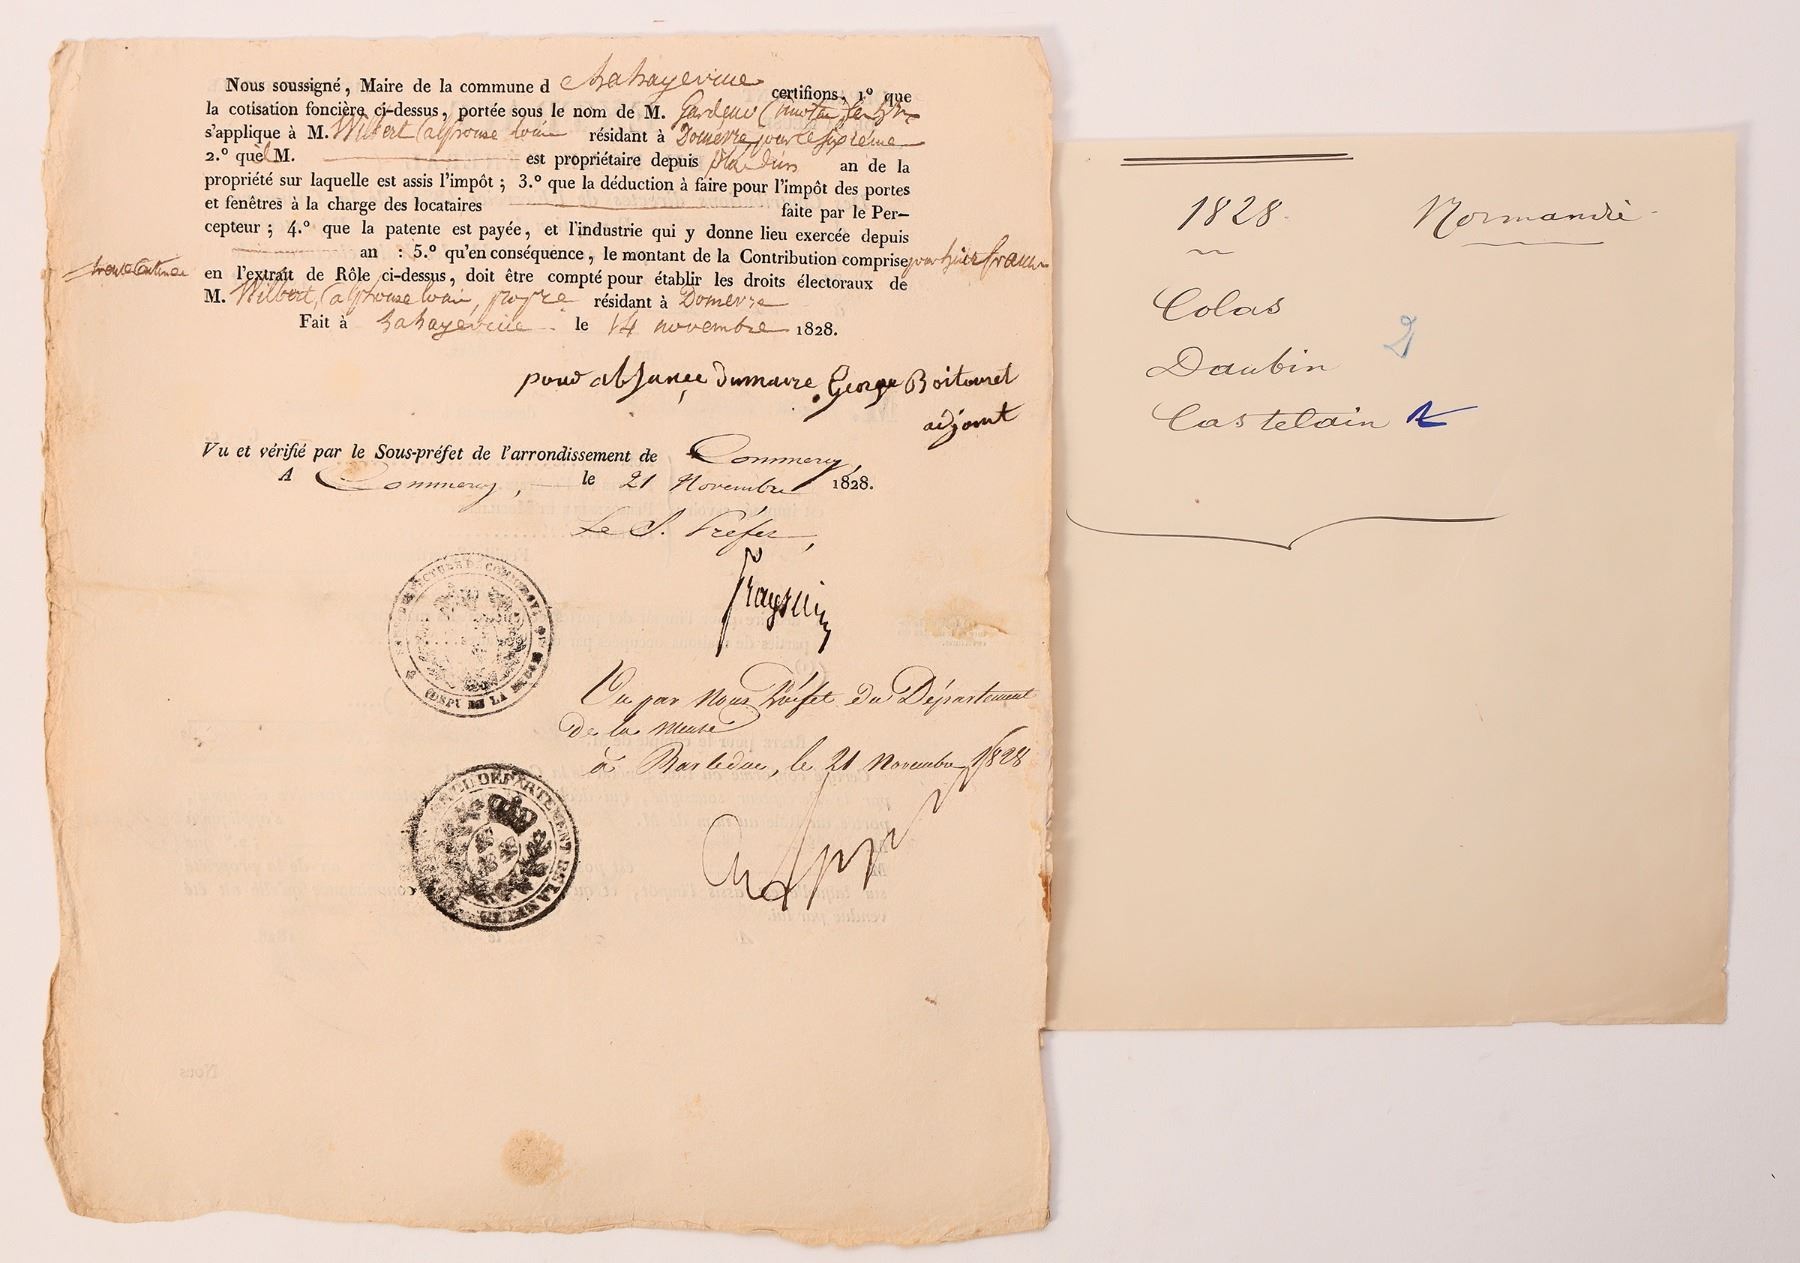 Nous soussigné, Maire de la commune d Lahayeville certifions, 1.º que
la cotisation foncière ci-dessus, portée sous le nom de M.
s'applique à M. Wilbert alphonse résidant à Domevre pour le sixième
2.º quel M. est propriétaire depuis plus d'un an de la
propriété sur laquelle est assis l'impôt ; 3.º que la déduction à faire pour l'impôt des portes
et fenêtres à la charge des locataires faite par le Per-
cepteur ; 4.º que la patente est payée, et l'industrie qui y donne lieu exercée depuis
an : 5.º qu'en conséquence, le montant de la Contribution comprise pour huit francs
trente Centimes
en l'extrait de Rôle ci-dessus, doit être compté pour établir les droits électoraux de
M. Wilbert, alphonse résidant à Domevre
Fait à Lahayeville le 14 novembre 1828.
pour absance dumaire George Boitouret
adjoint
Vu et vérifié par le Sous-préfet de l'arrondissement de Commercy,
A Commercy, le 21 Novembre 1828.
Le S. Préfet,
Vu par Nous Préfet du Département
De la Meuse
à Barleduc, le 21 Novembre 1828
1828. Normandie
Colas
Daubin
Castelain
Nous